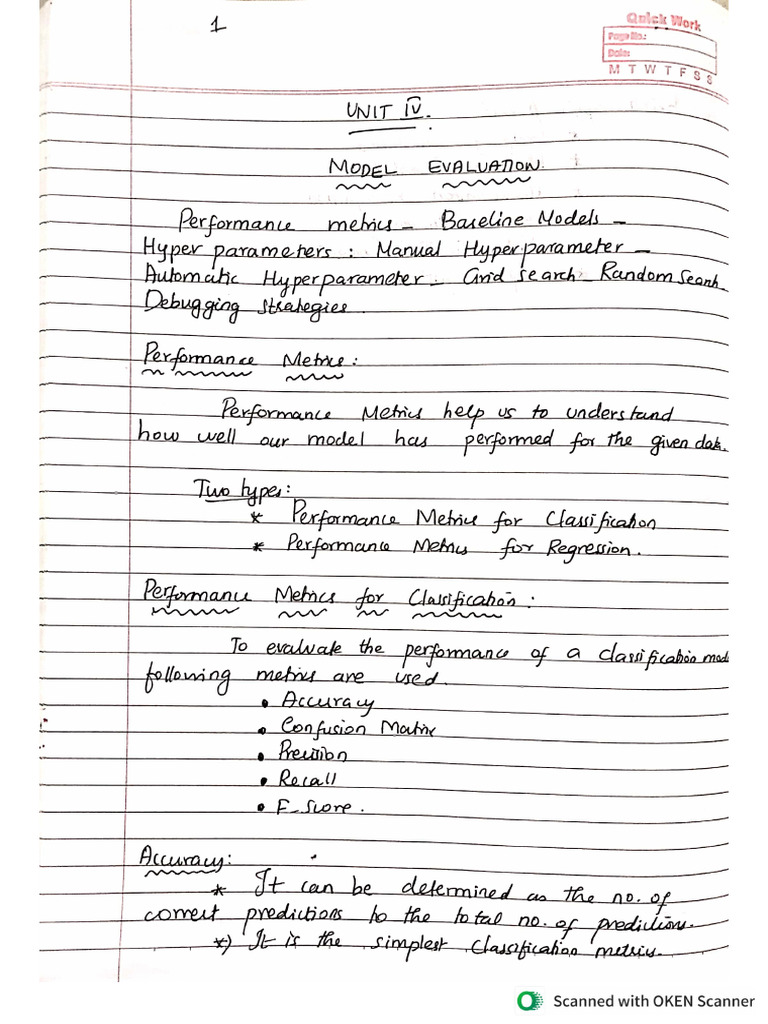 1
Quick Work
Page No.:
Date:
M T W T F S S
UNIT IV.
MODEL EVALUATION.
Performance metrics - Baseline Models -
Hyper parameters : Manual Hyperparameter -
Automatic Hyperparameter - Grid search - Random Search
Debugging strategies.
Performance Metrics :
Performance Metrics help us to understand
how well our model has performed for the given data.
Two types :
* Performance Metrics for Classification
* Performance Metrics for Regression.
Performance Metrics for Classification :
To evaluate the performance of a classification mod
following metrics are used.
• Accuracy
• Confusion Matrix
• Precision
• Recall
• F_Score.
Accuracy :
* It can be determined as the no. of
correct predictions to the total no. of predictions.
*) It is the simplest Classification metrics.
Scanned with OKEN Scanner